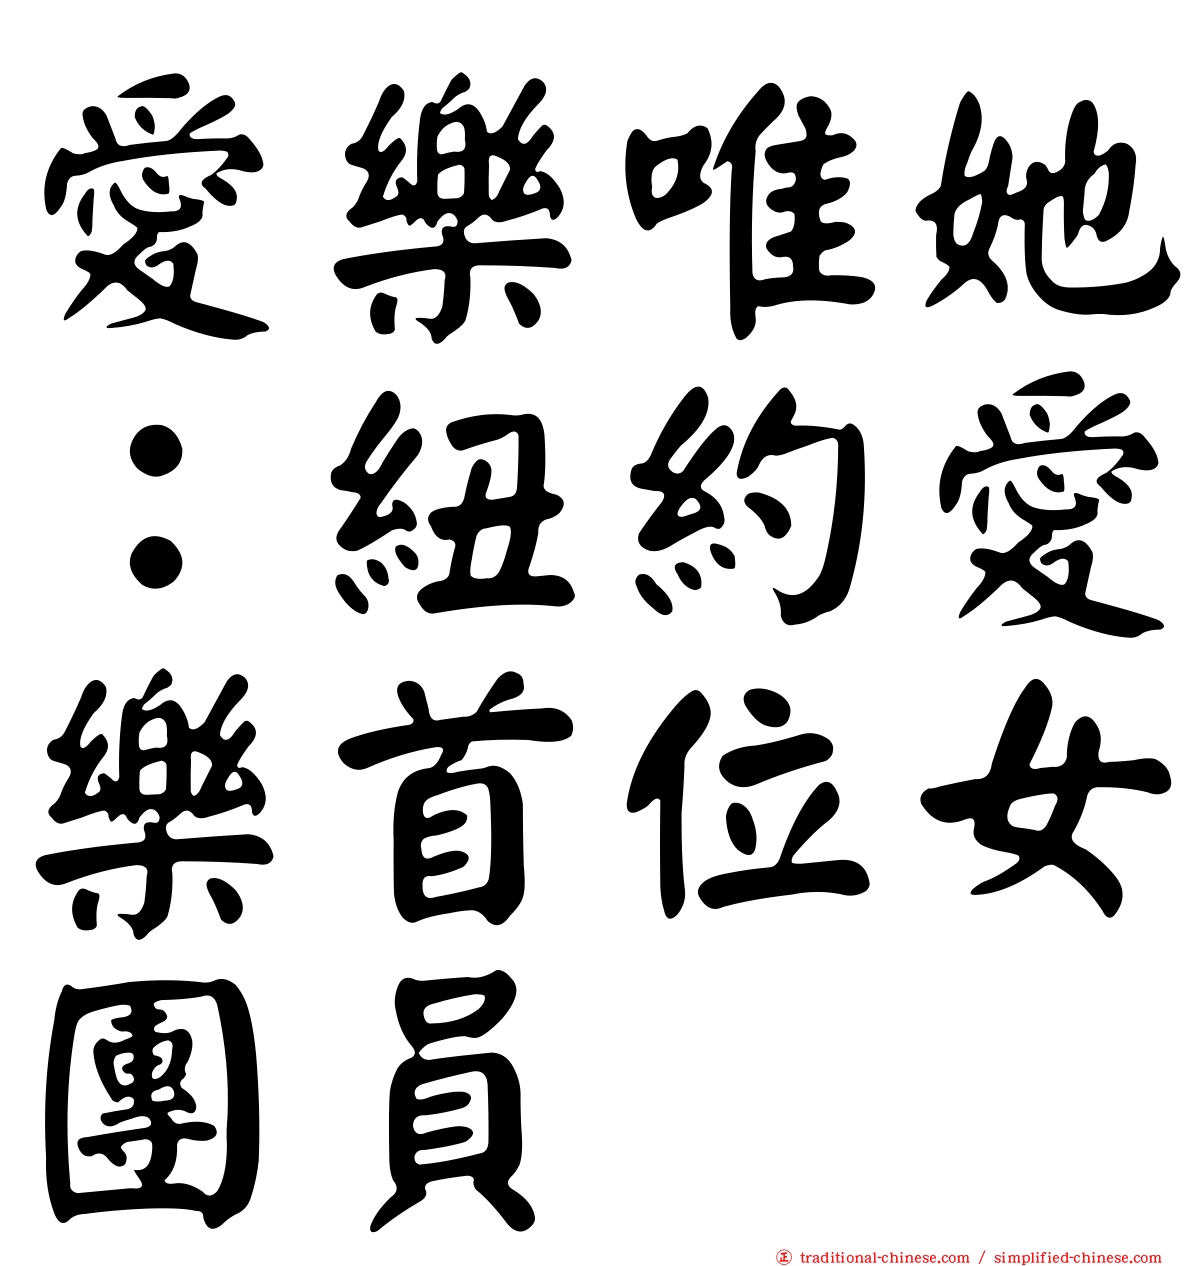 愛樂唯她
：紐約愛
樂首位女
團員
㊣ traditional-chinese.com / simplified-chinese.com